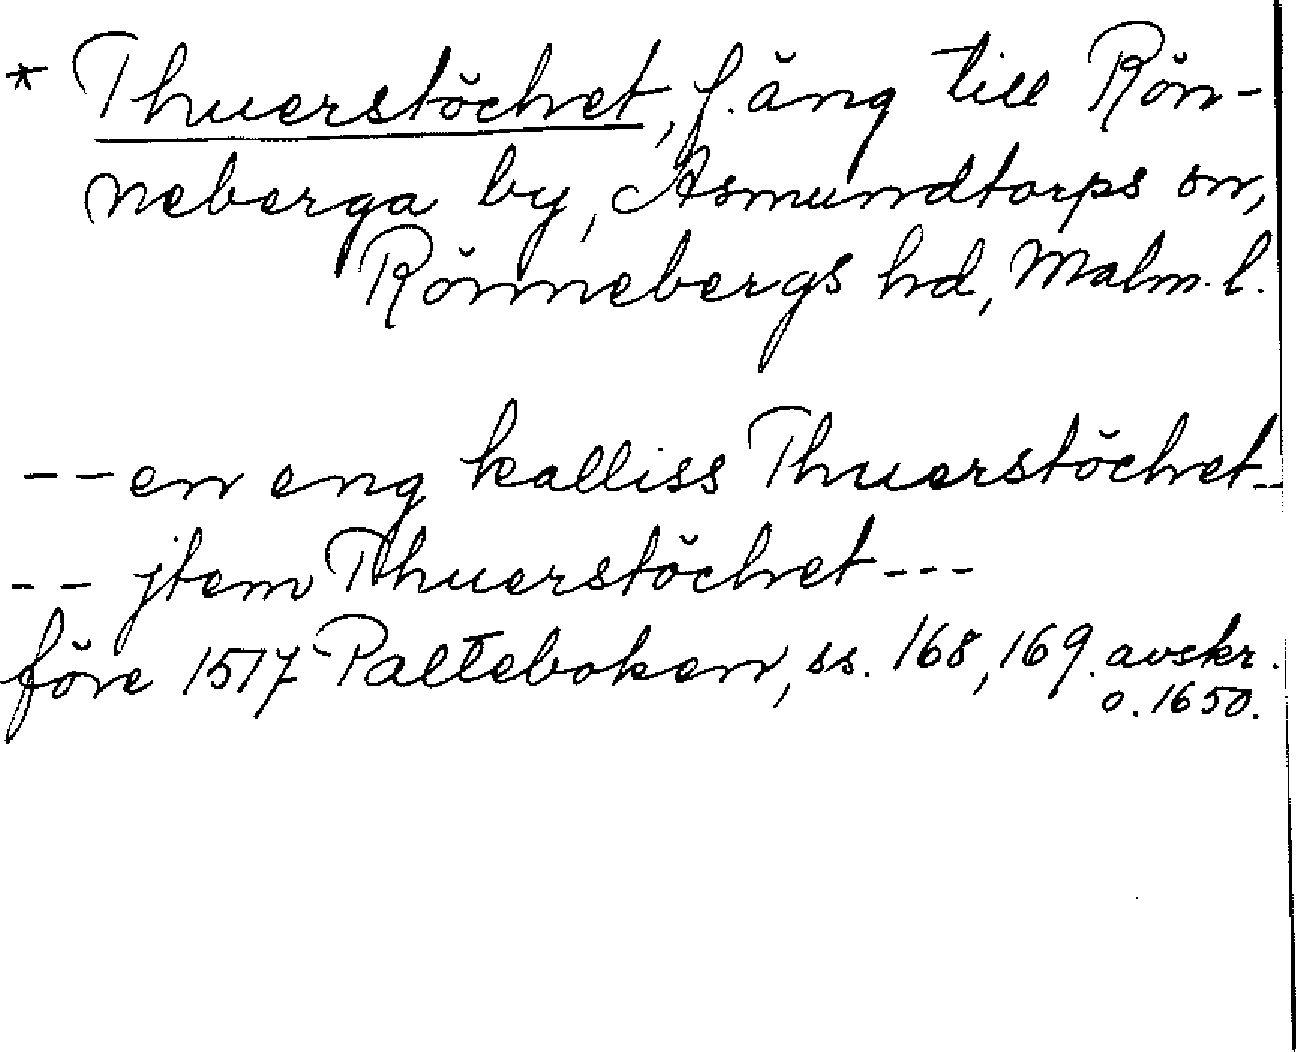 * Thuerstöchet, f. äng till Rön-
neberga by, Asmundtorps sn,
Rönnebergs hd, Malm. l.
-- en eng kalliss Thuerstöchet--
-- jtem Thuerstöchet ---
före 1517 Palteboken, ss. 168, 169. avskr.
o. 1650.